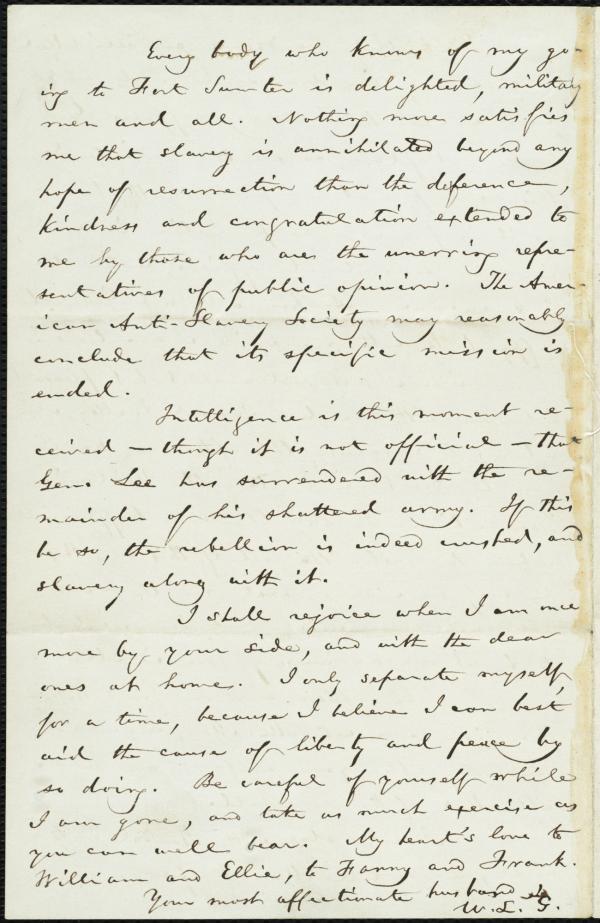 Every body who knows of my go-
ing to Fort Sumter is delighted, military
men and all. Nothing more satisfies
me that slavery is annihilated beyond any
hope of resurrection than the deference,
kindness and congratulation extended to
me by those who are the unerring repre-
sentatives of public opinion. The Amer-
ican Anti-Slavery Society may reasonably
conclude that its specific mission is
ended.
Intelligence is this moment re-
ceived — though it is not official — that
Gen. Lee has surrendered with the re-
mainder of his shattered army. If this
be so, the rebellion is indeed crushed, and
slavery along with it.
I shall rejoice when I am once
more by your side, and with the dear
ones at home. I only separate myself,
for a time, because I believe I can best
aid the cause of liberty and peace by
so doing. Be careful of yourself while
I am gone, and take as much exercise as
you can well bear. My heart's love to
William and Ellie, to Fanny and Frank.
Your most affectionate husband,
W. L. G.